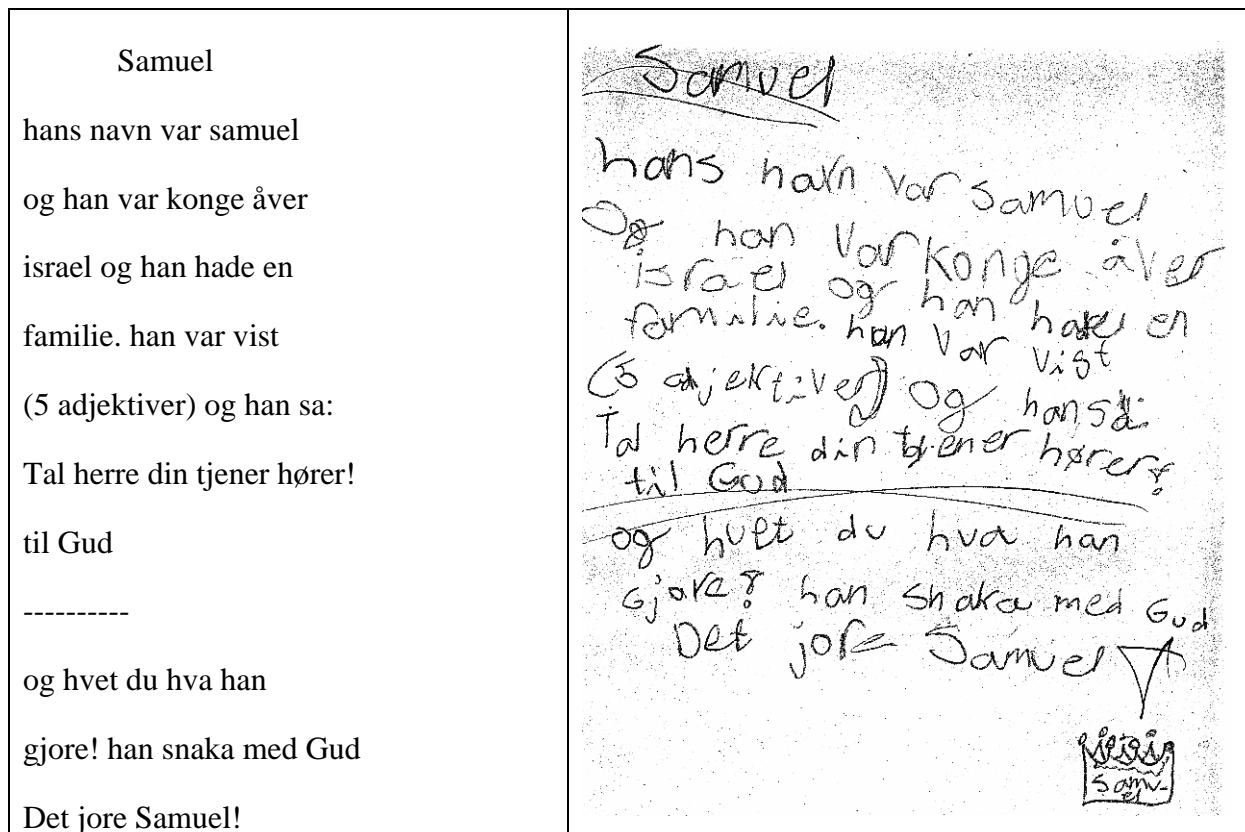 Samuel
hans navn var samuel
og han var konge åver
israel og han hade en
familie. han var vist
(5 adjektiver) og han sa:
Tal herre din tjener hører!
til Gud
----------
og hvet du hva han
gjore! han snaka med Gud
Det jore Samuel!
Samuel
hans navn var samuel
Og han var konge åver
israel og han hade en
familie. han var vist
(5 adjektiver) og han sa:
Tal herre din tjener hører!
til Gud
og hvet du hva han
gjore! han snaka med Gud
Det jore Samuel
Samu-
el